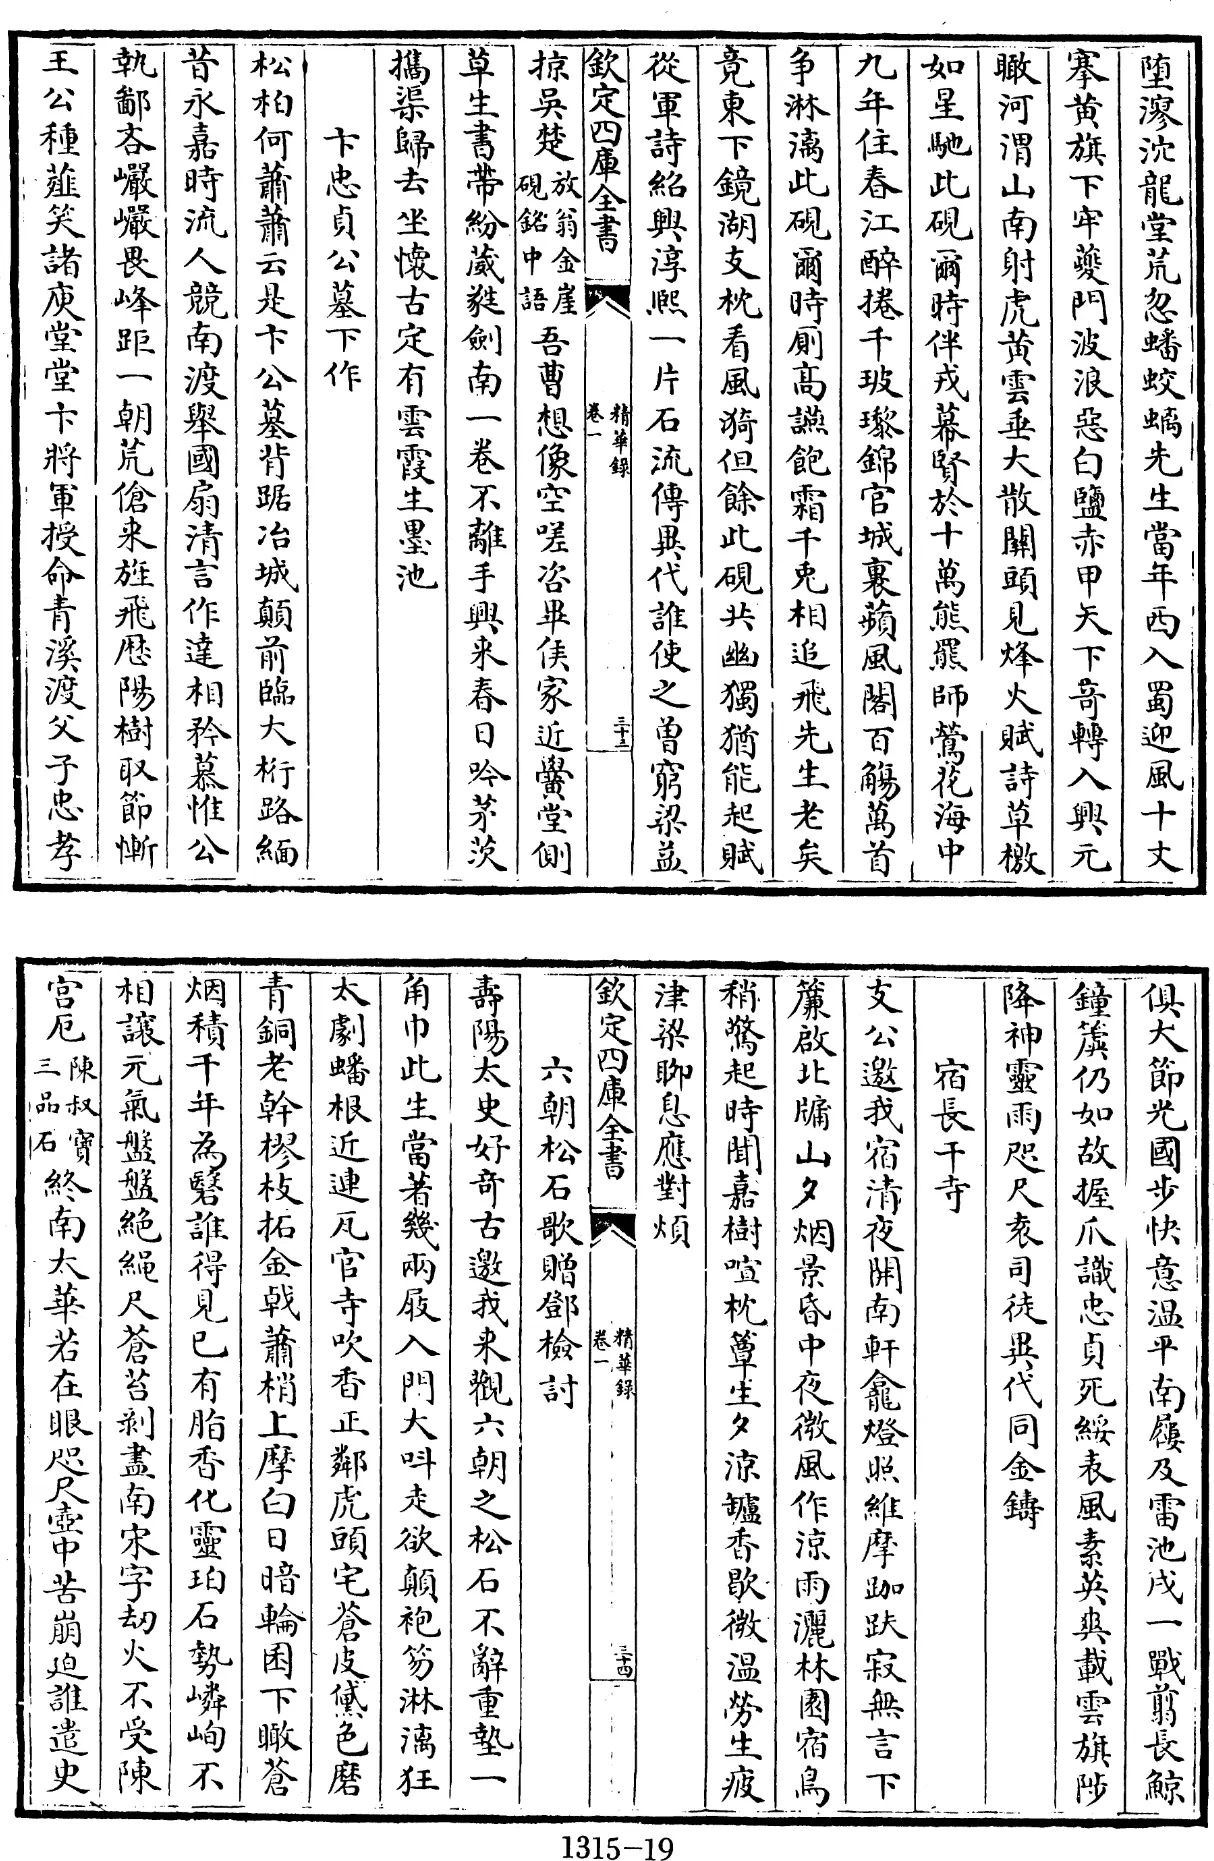 墮瀴沈龍堂荒忽蟠蛟螭先生當年西入蜀迎風十丈
搴黄旗下牢夔門波浪惡白鹽赤甲天下竒轉入興元
瞰河渭山南射虎黄雲垂大散關頭見烽火賦詩草檄
如星馳此硯爾時伴戎幕賢於十萬熊羆師鶯花海中
九年住春江醉捲千玻瓈錦官城裏蘋風閣百觴萬首
争淋漓此硯爾時厠髙讌飽霜千兎相追飛先生老矣
竟東下鏡湖支枕看風漪但餘此硯共幽獨猶能起賦
從軍詩紹興淳熙一片石流傳異代誰使之曽窮梁益
欽定四庫全書 精華録 卷一 三十三
掠吳楚放翁金崖硯銘中語吾曹想像空嗟咨畢侯家近黌堂側
草生書帶紛葳蕤劍南一卷不離手興来春日吟茅茨
攜渠歸去坐懷古定有雲霞生墨池
卞忠貞公墓下作
松柏何蕭蕭云是卞公墓背踞冶城顛前臨大桁路緬
昔永嘉時流人競南渡舉國扇清言作達相矜慕惟公
執鄙吝巖巖畏峰距一朝荒傖来旌飛歴陽樹取節慚
王公種薤笑諸庾堂堂卞將軍授命青溪渡父子忠孝
俱大節光國步快意温平南屨及雷池戍一戰翦長鯨
鐘簴仍如故握爪識忠貞死綏表風素英爽載雲旗陟
降神靈雨咫尺袁司徒異代同金鑄
宿長干寺
支公邀我宿清夜開南軒龕燈照維摩跏趺寂無言下
簾啟北牖山夕烟景昏中夜微風作涼雨灑林園宿鳥
稍驚起時聞嘉樹喧枕簟生夕涼罏香歇微温勞生疲
津梁聊息應對煩
欽定四庫全書 精華録 卷一 三十四
六朝松石歌贈鄧檢討
壽陽太史好竒古邀我来觀六朝之松石不辭重墊一
角巾此生當著幾兩屐入門大呌走欲顛袍笏淋漓狂
太劇蟠根近連瓦官寺吹香正鄰虎頭宅蒼皮黛色磨
青銅老幹樛枝拓金戟蕭梢上摩白日暗輪囷下瞰蒼
烟積千年為鬐誰得見已有脂香化靈珀石勢嶙峋不
相讓元氣盤盤絶繩尺蒼苔剥盡南宋字劫火不受陳
宫厄陳叔寶三品石終南太華若在眼咫尺壺中苦崩迫誰遣史
1315-19